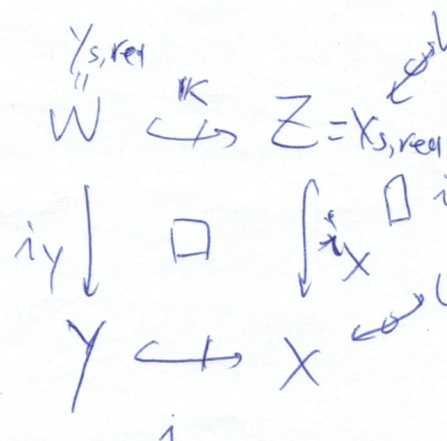 Y_{s,red}
"
W ↪ K Z = X_{s,red}
i_Y ↓ □ ↓ i_X □ i
Y ↪ X
i